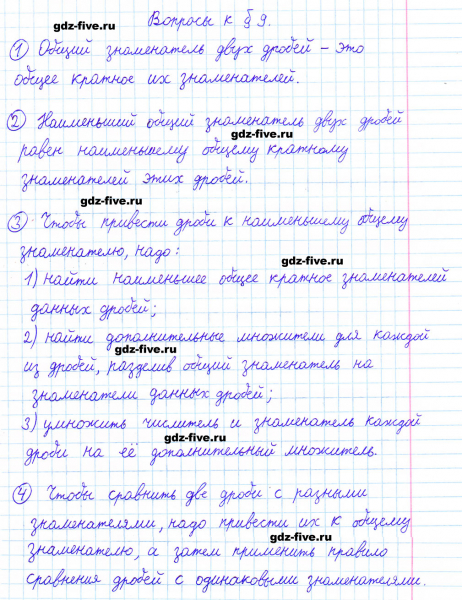 Вопросы к § 9.
gdz-five.ru
① Общий знаменатель двух дробей – это
общее кратное их знаменателей.
gdz-five.ru
② Наименьший общий знаменатель двух дробей
gdz-five.ru
равен наименьшему общему кратному
знаменателей этих дробей.
gdz-five.ru
③ Чтобы привести дроби к наименьшему общему
знаменателю, надо:
gdz-five.ru
1) найти наименьшее общее кратное знаменателей
данных дробей;
2) найти дополнительные множители для каждой
gdz-five.ru
из дробей, разделив общий знаменатель на
знаменатели данных дробей;
3) умножить числитель и знаменатель каждой
gdz-five.ru
дроби на её дополнительный множитель.
④ Чтобы сравнить две дроби с разными
знаменателями, надо привести их к общему
gdz-five.ru
знаменателю, а затем применить правило
сравнения дробей с одинаковыми знаменателями.